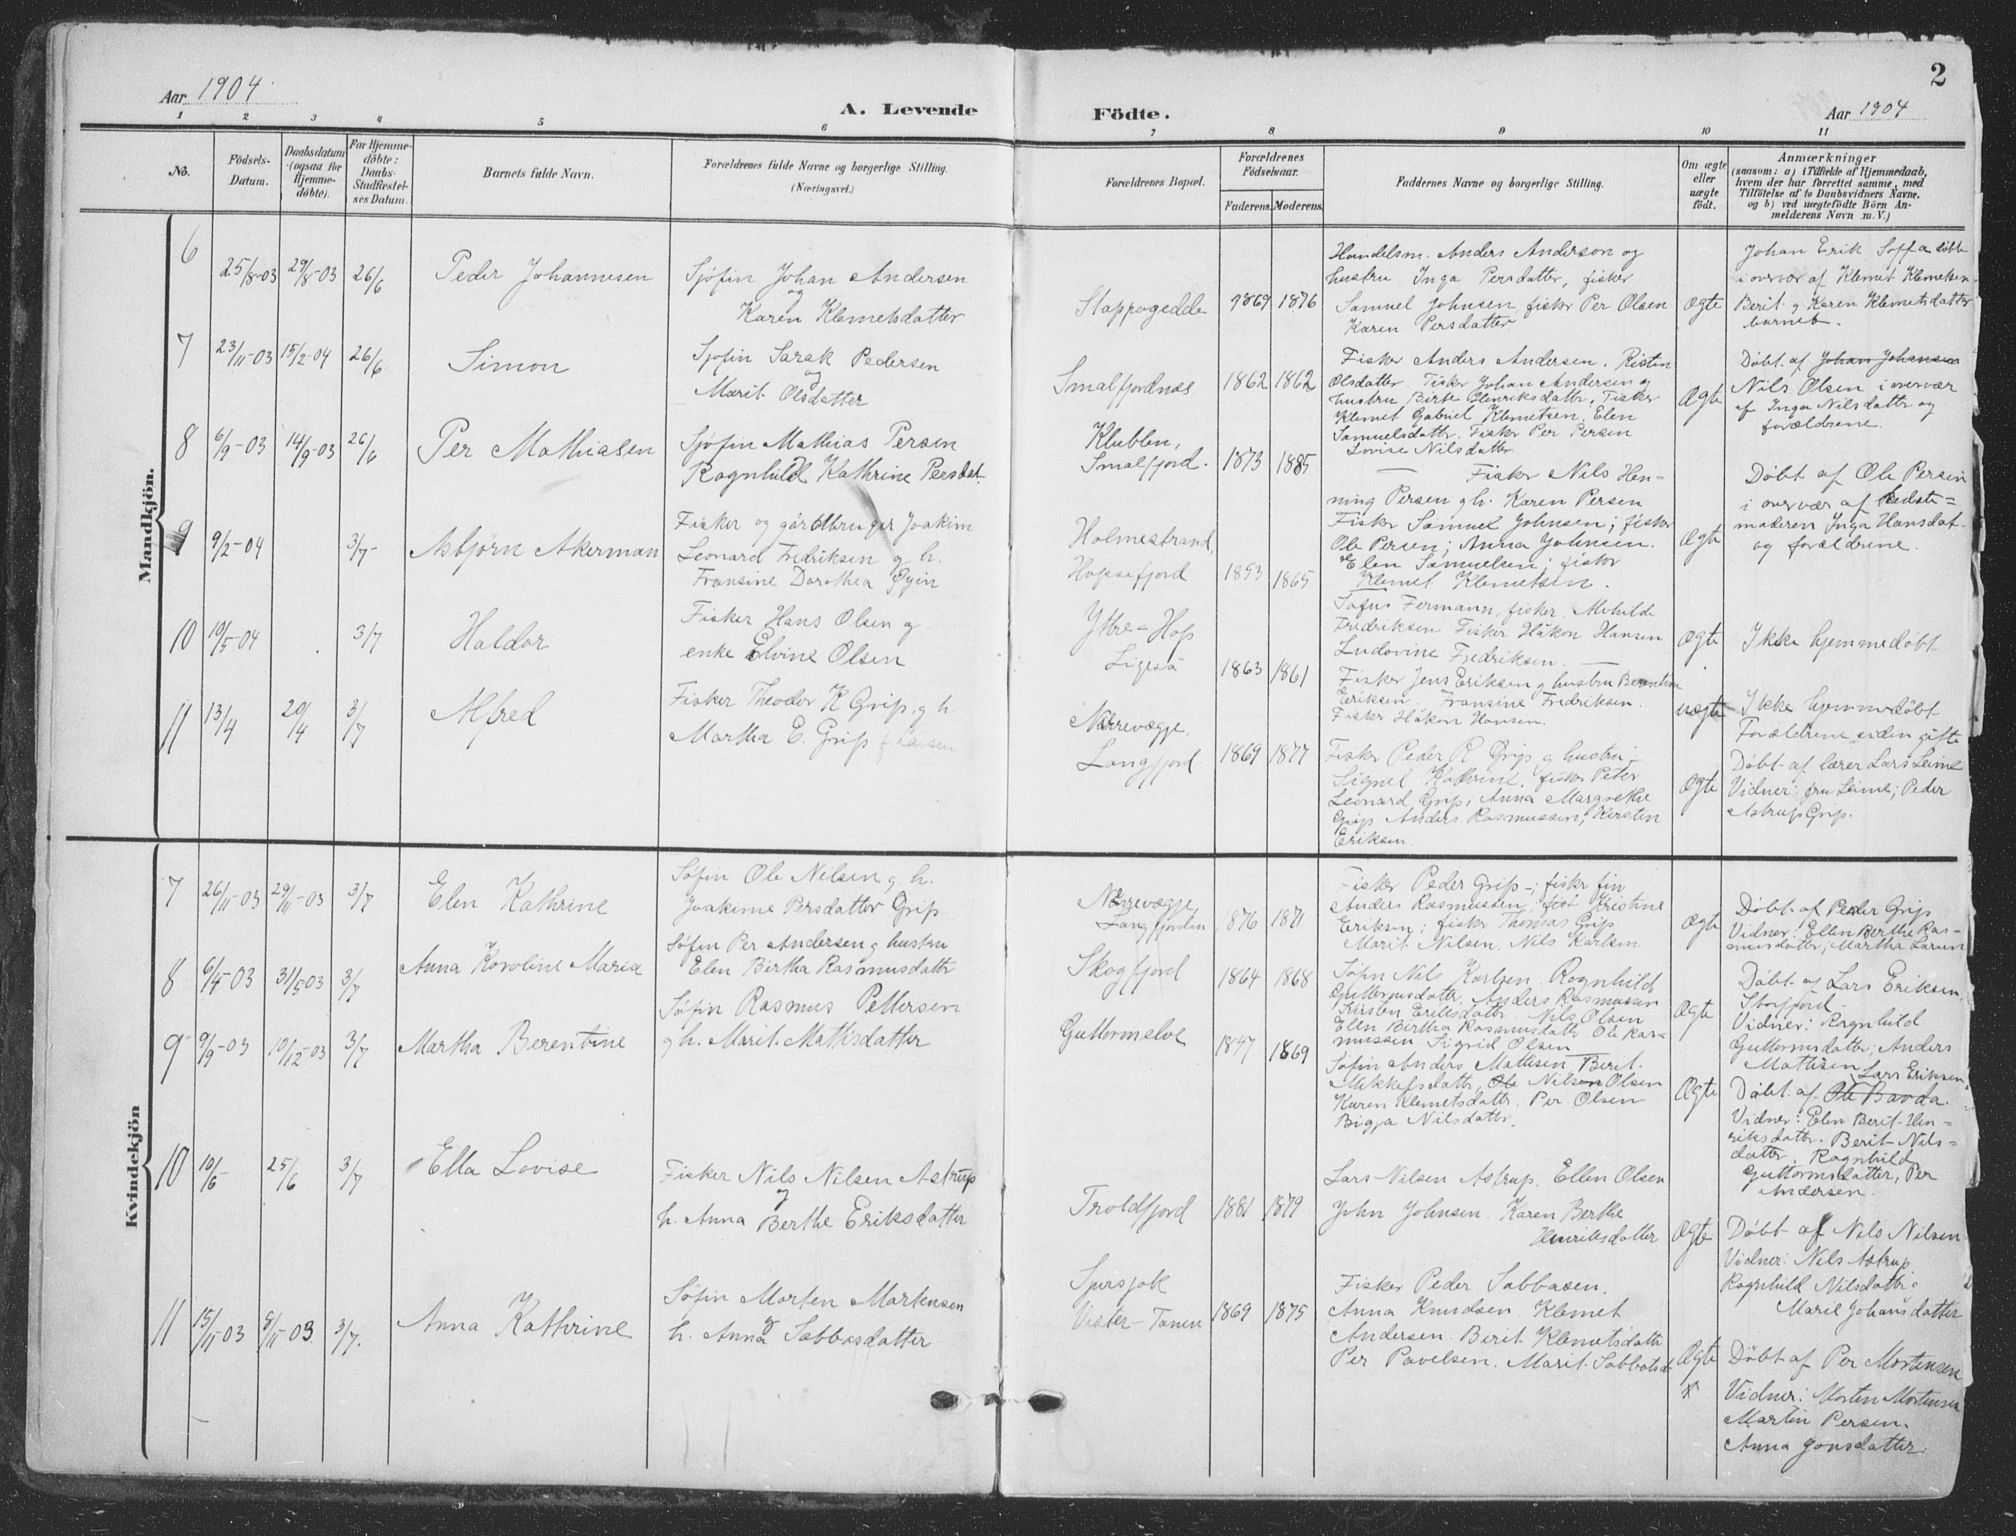 Aar 1904
A. Levende
Födte.
Aar 1904
2
1 2 3 4 5 6 7 8 9 10 11
No.
Födsels-
Datum.
Daabsdatum
(ogsaa for
Hjemme-
döbte).
For Hjemme-
döbte:
Daabs-
Stadfæstel-
ses Datum.
Barnets fulde Navn.
Forældrenes fulde Navne og borgerlige Stilling.
(Næringsvei.)
Forældrenes Bopæl.
Forældrenes
Födselsaar.
Faderens. Moderens.
Faddernes Navne og borgerlige Stilling.
Om ægte
eller
uægte
födt.
Anmærkninger
(saasom: a) i Tilfælde af Hjemmedaab,
hvem der har forrettet samme, med
Tilföielse af to Daabsvidners Navne.
og b) ved uægtefödte Börn An-
melderens Navn m. V.)
Mandkjön.
6
25/8-03 29/8-03 26/6
Peder Johannesen
Sjøfin Johan Andersen
og
Karen Klemetsdatter
Stappogedde
1869 1876
Handelsm. Anders Anderson og
hustru Inga Persdatter, fisker
Samuel Johnsen, fisker Per Olsen
Karen Persdatter
Ægte
Johan Erik Soffa døbte
i overvær af Klemet Klemetsen
Berit og Karen Klemetsdatter
barneb.
7
23/11-03 15/2-04 26/6
Simon
Sjøfin Sarak Pedersen
og
Marit Olsdatter
Smalfjordnæs
1862 1862
Fisker Anders Andersen. Ristin
Olsdatter. Fisker Johan Andersen og
hustru Birte Henriksdatter, Fisker
Klemet Gabriel Klemetsen. Elen
Samuelsdattr. Fisker Per Persen
Lovise Nilsdatter.
Ægte
Døbt af Johan Johansen
Nils Olsen i overvær
af Inga Nilsdatter og
forældrene.
8
6/9-03 14/9-03 26/6
Per Mathiasen
Sjøfin Mathias Persen
Ragnhild Kathrine Persdat.
Klubben,
Smalfjord.
1873 1885
Fisker Nils Hen-
ning Persen g h. Karen Persen
Fisker Samuel Johnsen; fisker
Ole Persen; Anna Johnsen.
Elen Samuelsen; fisker
Klemet Klemetsen.
Ægte
Døbt af Ole Persen
i overvær af bedste-
moderen Inga Hansdat.
og forældrene.
9
9/2-04 3/7-
Asbjørn Akerman
Fisker og gårdbruger Joakim
Leonard Fredriksen g h.
Fransine Dorothea Gyin
Holmestrand,
Hopsefjord
1853 1865
Sofus Fermann, fisker. Mathilde
Fredriksen Fisker Håkon Hansen
Ludovine Fredriksen.
Ægte
Ikke hjemmedøbt
10
10/5-04 3/7
Haldor
Fisker Hans Olsen g
enke Elvine Olsen
Yttre-Hop
Ligeså
1863 1861
Fisker Jens Eriksen g hustru Berntine
Eriksen Fransine Fredriksen.
Fisker Håkon Hansen.
uægte
Ikke hjemmedøbt
Forældrene siden gifte
11
13/4 20/4 3/7
Alfred
Fisker Theodor K Grip, g h.
Martha E. Grip f Larsen
Nærrevægge,
Langfjord
1869 1877
Fisker Peder R Grip g hustru
Signel Kathrine, fisker Peter
Leonard Grip; Anna Margrethe
Grip Anders Rasmussen, Kirsten
Eriksen.
Ægte
Døbt af lærer Lars Leime
Vidner: fru Leime; Peder
Astrup Grip.
Kvindekjön
7
26/11-03 29/11-03 3/7
Elen Kathrine
Søfin Ole Nilsen g h.
Joakime Persdatter Grip
Nærrevægge,
Langfjorden
1876 1871
Fisker Peder Grip; fisker fin
Anders Rasmussen, Kristine
Eriksen; fisker Thomas Grip
Marit Nilsen. Nils Karlsen
Ægte
Døbt af Peder Grip
Vidner: Ellen Berthe Ras-
musdatter; Martha Larsen
8
6/4-03 31/5-03 3/7
Anna Karoline Maria
Søfin Per Andersen g hustru
Elen Birtha Rasmusdattr
Skogfjord
1864 1868
Søfin Nils Karlsen. Ragnhild
Guttormsdatter. Anders Rasmussen
Kirsten Eriksdatter. Nils Olsen
Elen Birtha Rasmusdattr Ole Ras-
mussen. Sigrid Olsen
Ægte
Døbt af Lars Eriksen,
Storfjord
Vidner: Ragnhild
Guttormsdatter; Anders
Mathisen
9
9/9-03 10/12-03 3/7
Martha Berentine
Søfin Rasmus Pettersen
g h. Marit Mathisdatter
Guttormelve
1847 1869
Søfin Anders Mathisen Berit
Mikkelsdattr, Ole Nilsen Olsen
Karen Klemetsdattr. Per Olsen
Bigja Nilsdatter.
Ægte
Lars Eriksen,
Døbt af Ole Bavda.
Vidner: Elen Berit Hen-
riksdatter. Berit Nils-
datter. Ragnhild
Guttormsdatter, Per
Andersen.
10
10/6 25/6 3/7
Ella Lovise
Fisker Nils Nilsen Astrup
g
h. Anna Berthe Eriksdatter
Troldfjord
1881 1879
Lars Nilsen Astrup. Ellen Olsen
John Johnsen. Karen Berthe
Henriksdatter
Ægte
Døbt af Nils Nilsen
Vidner: Nils Astrup
Ragnhild Nilsdattr.
Marie Johansdatter
11
15/11-03 8/11-03 3/7.
Anna Kathrine
Søfin Morten Martensen
g
h. Anna Sabbasdatter
Sjursjok
Vister-Tanen
1869 1875
Fisker Peder Sabbasen.
Anna Knudsen Klemet
Andersen. Berit Klemetsdattr
Per Pavelsen. Marit Sabbasd
Ægte
x
Døbt af Per Mortensen
Vidner: Morten Mortensen
Martin Persen.
Anna Jonsdatter.